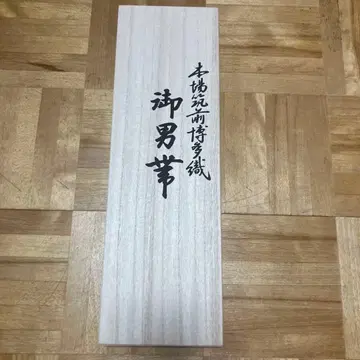 本場筑前博多織
御男帯